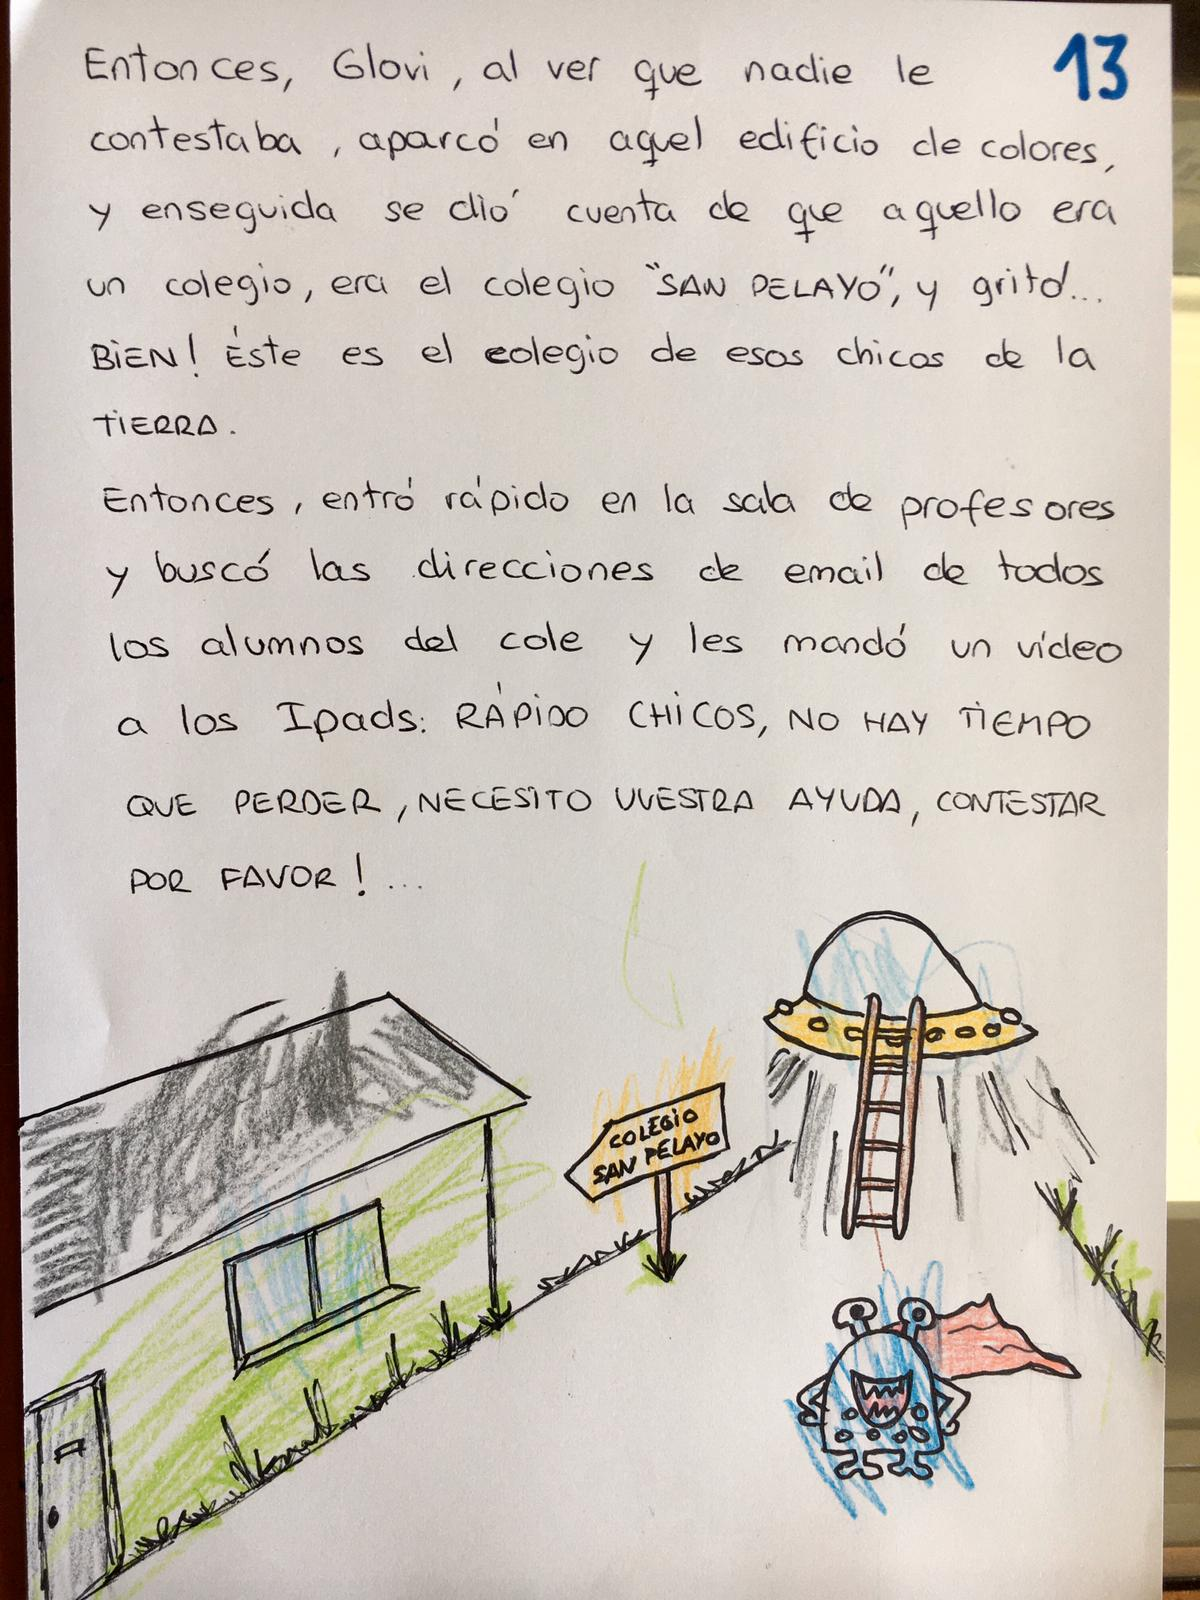 13
Entonces, Glovi, al ver que nadie le
contestaba, aparcó en aquel edificio de colores,
y enseguida se dió cuenta de que aquello era
un colegio, era el colegio "SAN PELAYO", y gritó...
BIEN! Éste es el colegio de esos chicos de la
TIERRA.
Entonces, entró rápido en la sala de profesores
y buscó las direcciones de email de todos
los alumnos del cole y les mandó un vídeo
a los Ipads: RÁPIDO CHICOS, NO HAY TIEMPO
QUE PERDER, NECESITO VUESTRA AYUDA, CONTESTAR
POR FAVOR!...
COLEGIO
SAN PELAYO